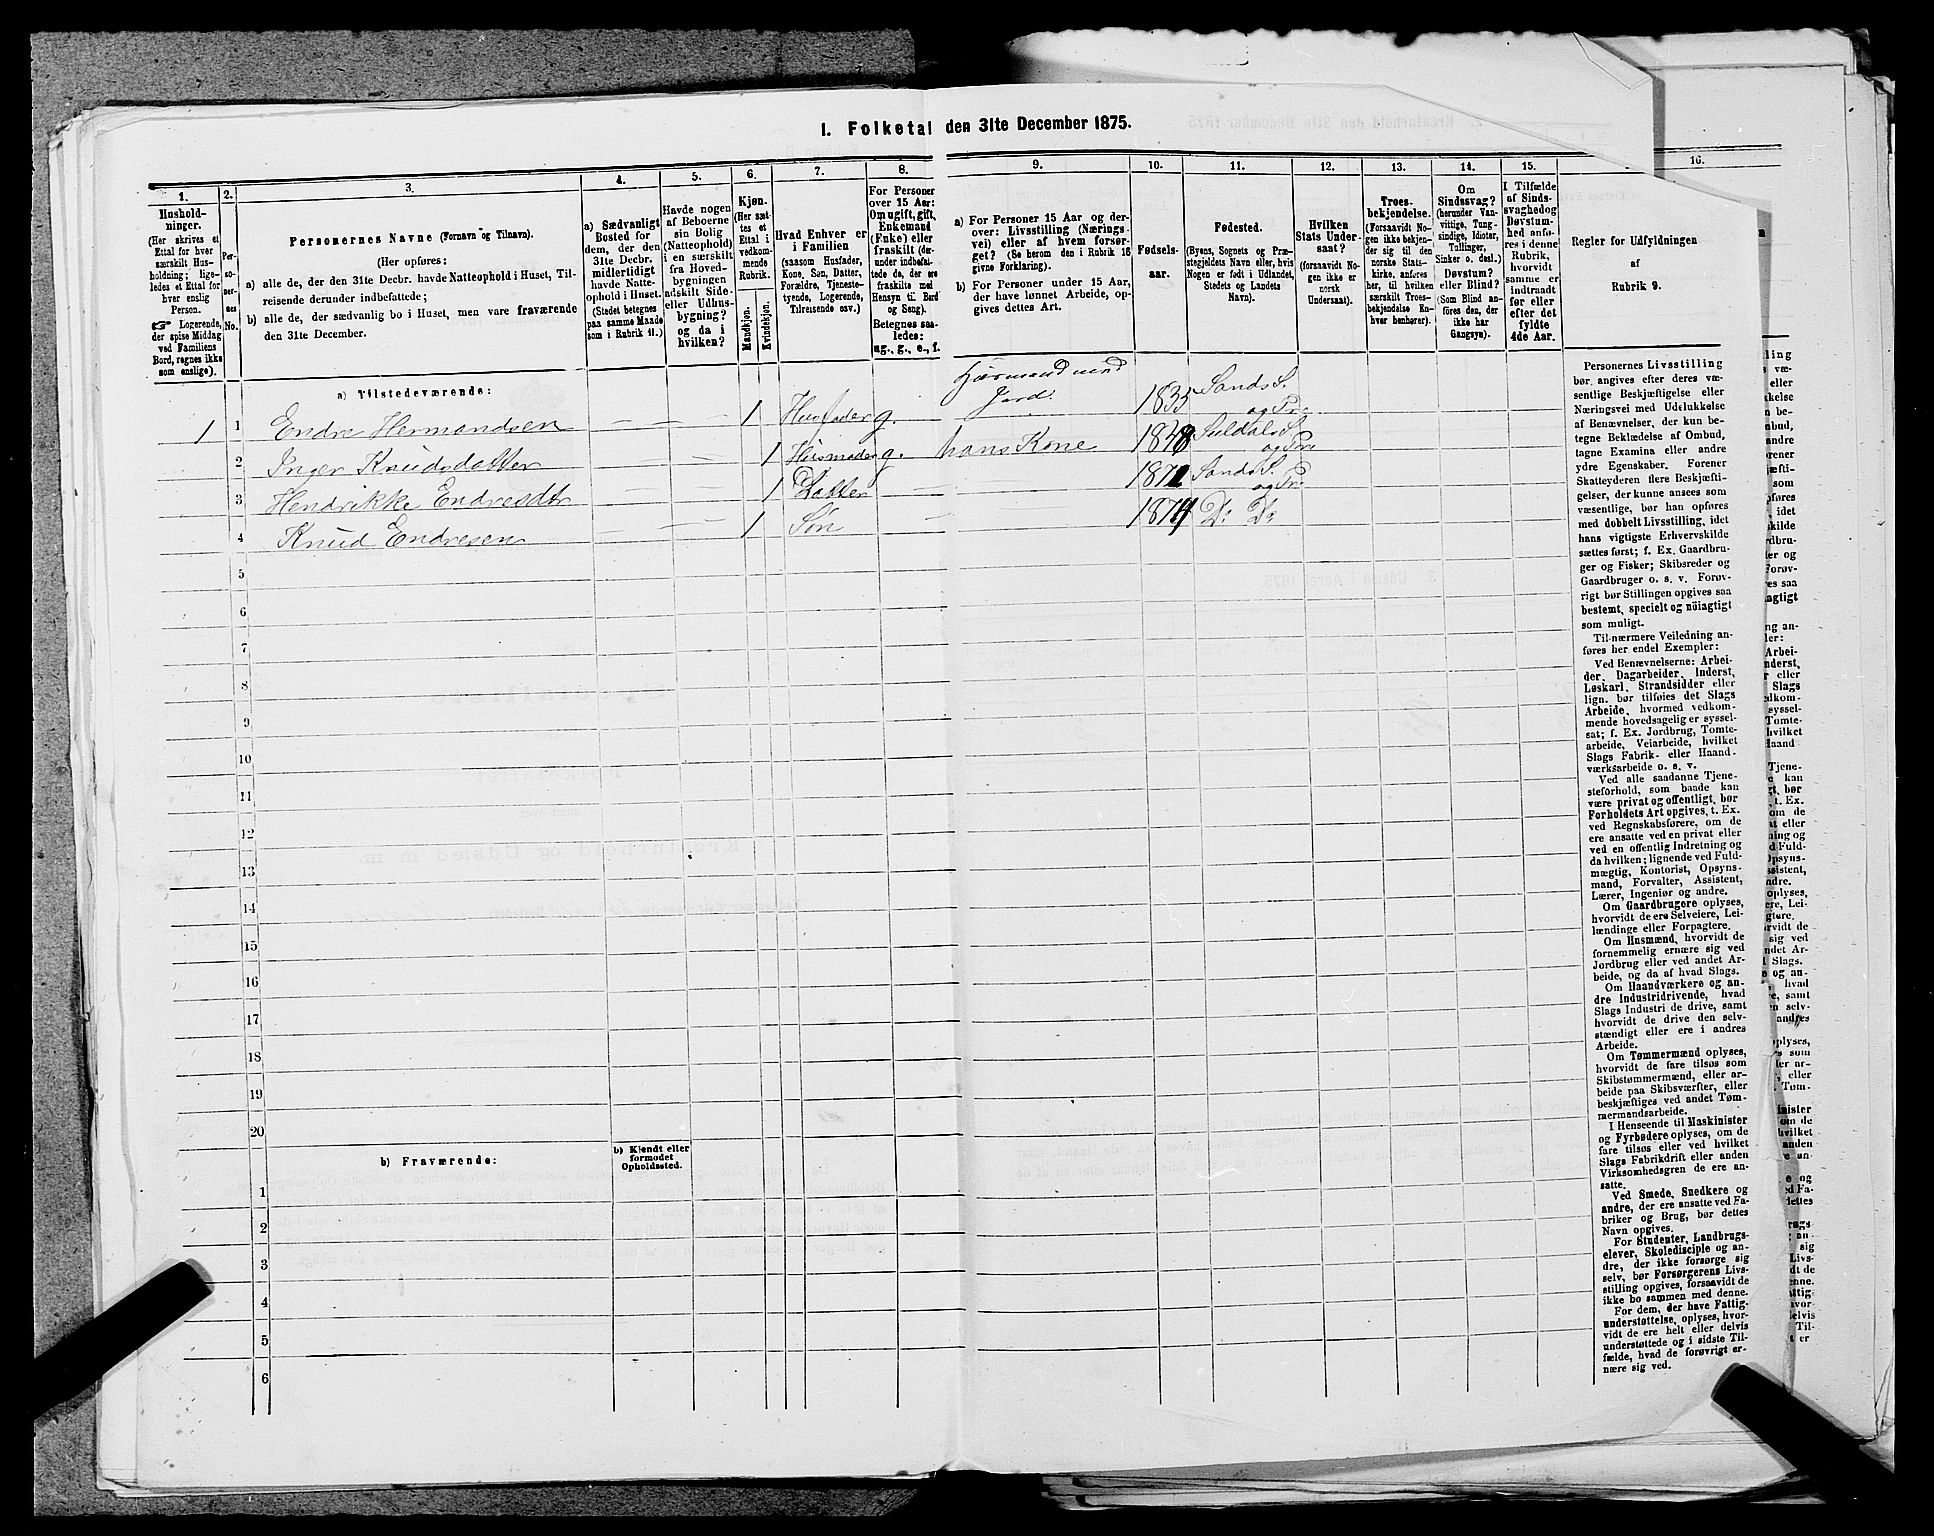 I. Folketal den 31te December 1875.
1.
2.
3.
4.
5.
6.
7.
8.
9.
10.
11.
12.
13.
14.
15.
16.
Hushold-
ninger.
(Her skrives et
Ettal for hver
særskilt Hus-
holdning; lige-
ledes et Ettal for
hver enslig
Person.
☞ Logerende,
der spise Middag
ved Familiens
Bord, regnes ikke
som enslige).
Per-
so-
ner-
nes
No.
Personernes Navne (Fornavn og Tilnavn).
(Her opføres:
a) alle de, der den 31te Decbr. havde Natteophold i Huset, Til-
reisende derunder indbefattede;
b) alle de, der sædvanlig bo i Huset, men vare fraværende
den 31te December.
a) Sædvanligt
Bosted for
dem, der den
31te Decbr.
midlertidigt
havde Natte-
ophold i Huset.
(Stedet betegnes
paa samme Maade
som i Rubrik 11.)
Havde nogen
af Beboerne
sin Bolig
(Natteophold)
i en særskilt
fra Hoved-
bygningen
adskilt Side-
eller Udhus-
bygning?
og da i
hvilken?
Kjøn.
(Her sæt-
tes et
Ettal i
vedkom-
mende
Rubrik.
Mandkjøn.
Kvindekjøn.
Hvad Enhver er
i Familien
(saasom Husfader,
Kone, Søn, Datter,
Forældre, Tjeneste-
tyende, Logerende,
Tilreisende osv.)
For Personer
over 15 Aar:
Om ugift, gift,
Enkemand
(Enke) eller
fraskilt (der-
under indbefat-
tede de, der ere
fraskilte med
Hensyn til Bord
og Seng).
Betegnes saa-
ledes:
ug., g., e., f.
a) For Personer 15 Aar og der-
over: Livsstilling (Nærings-
vei) eller af hvem forsør-
get? (Se herom den i Rubrik 16
givne Forklaring).
b) For Personer under 15 Aar,
der have lønnet Arbeide, op-
gives dettes Art.
Fødsels-
aar.
Fødested.
(Byens, Sognets og Præ-
stegjeldets Navn eller, hvis
Nogen er født i Udlandet,
Stedets og Landets
Navn).
Hvilken
Stats Under-
saat?
(forsaavidt No-
gen ikke er
norsk
Undersaat).
Troes-
bekjendelse.
(Forsaavidt No-
gen ikke bekjen-
der sig til den
norske Stats-
kirke, anføres
her, til hvilken
særskilt Troes-
bekjendelse En-
hver henhører).
Om
Sindssvag?
(herunder Van-
vittige, Tung-
sindige, Idioter,
Tullinger,
Sinker o. desl.)
Døvstum?
eller Blind?
(Som Blind an-
føres den, der
ikke har
Gangsyn).
I Tilfælde
af Sinds-
svaghed og
Døvstum-
hed anfø-
res i denne
Rubrik,
hvorvidt
samme er
indtraadt
før eller
efter det
fyldte
4de Aar.
Regler for Udfyldningen
af
Rubrik 9.
a) Tilstedeværende:
1 1 Endre Hermandsen — — 1 Husfader g. Jord. 1835 Sands S. og Pr.
2 Inger Knudsdatter — — 1 Husmoder g. hans Kone 1848 Suldals S. og Pr.
3 Hendrikke Endresdtr — — 1 Datter — 1871 Sands S. og Pr.
4 Knud Endresen — — 1 Søn 1874 Do Do
5
6
7
8
9
10
11
12
13
14
15
16
17
18
19
20
b) Fraværende:
b) Kjendt eller
formodet
Opholdssted.
1
2
3
4
5
6
Personernes Livsstilling
bør angives efter deres væ-
sentlige Beskjæftigelse eller
Næringsvei med Udelukkelse
af Benævnelser, der kun be-
tegne Beklædelse af Ombud,
tagne Examina eller andre
ydre Egenskaber. Forener
Skatteyderen flere Beskjæfti-
gelser, der kunne ansees som
væsentlige, bør han opføres
med dobbelt Livsstilling, idet
hans vigtigste Erhvervskilde
sættes først; f. Ex. Gaardbru-
ger og Fisker; Skibsreder og
Gaardbruger o. s. v. Forøv-
rigt bør Stillingen opgives saa
bestemt, specielt og nöiagtigt
som muligt.
Til nærmere Veiledning an-
føres her endel Exempler:
Ved Benævnelserne: Arbei-
der, Dagarbeider, Inderst,
Løskarl, Strandsidder eller
lign. bør tilføies det Slags
Arbeide, hvormed vedkom-
mende hovedsagelig er syssel-
sat; f. Ex. Jordbrug, Tomte-
arbeide, Veiarbeide, hvilket
Slags Fabrik- eller Haand-
værksarbeide o. s. v.
Ved alle saadanne Tjene-
steforhold, som baade kan
være privat og offentligt, bør
Forholdets Art opgives, t. Ex.
ved Regnskabsførere, om de
ere ansatte ved en privat eller
ved en offentlig Indretning og
da hvilken; lignende ved Fuld-
mægtig, Kontorist, Opsyns-
mand, Forvalter, Assistent,
Lærer, Ingeniør og andre.
Om Gaardbrugere oplyses,
hvorvidt de ere Selveiere, Lei-
lændinge eller Forpagtere.
Om Husmænd, hvorvidt de
fornemmelig ernære sig ved
Jordbrug eller ved andet Ar-
beide, og da af hvad Slags.
Om Haandværkere og an-
dre Industridrivende, hvad
Slags Industri de drive, samt
hvorvidt de drive den selv-
stændigt eller ere i andres
Arbeide.
Om Tømmermænd oplyses,
hvorvidt de fare tilsøs som
Skibstømmermænd, eller ar-
beide paa Skibsværfter, eller
beskjæftiges ved andet Tøm-
mermandsarbeide.
I Henseende til Maskinister
og Fyrbødere oplyses, om de
fare tilsøs eller ved hvilket
Slags Fabrikdrift eller anden
Virksomhedsgren de ere an-
satte.
Ved Smede, Snedkere og
andre, der ere ansatte ved Fa-
briker og Brug, bør dettes
Navn opgives.
For Studenter, Landbrugs-
elever, Skoledisciple og an-
dre, der ikke forsørge sig
selv, bør Forsørgerens Livs-
stilling opgives, forsaavidt de
ikke bo sammen med denne.
For dem, der have Fattig-
understøttelse, oplyses, hvor-
vidt de ere helt eller delvis
understøttede og i sidste Til-
fælde, hvad de forøvrigt er-
nære sig ved.